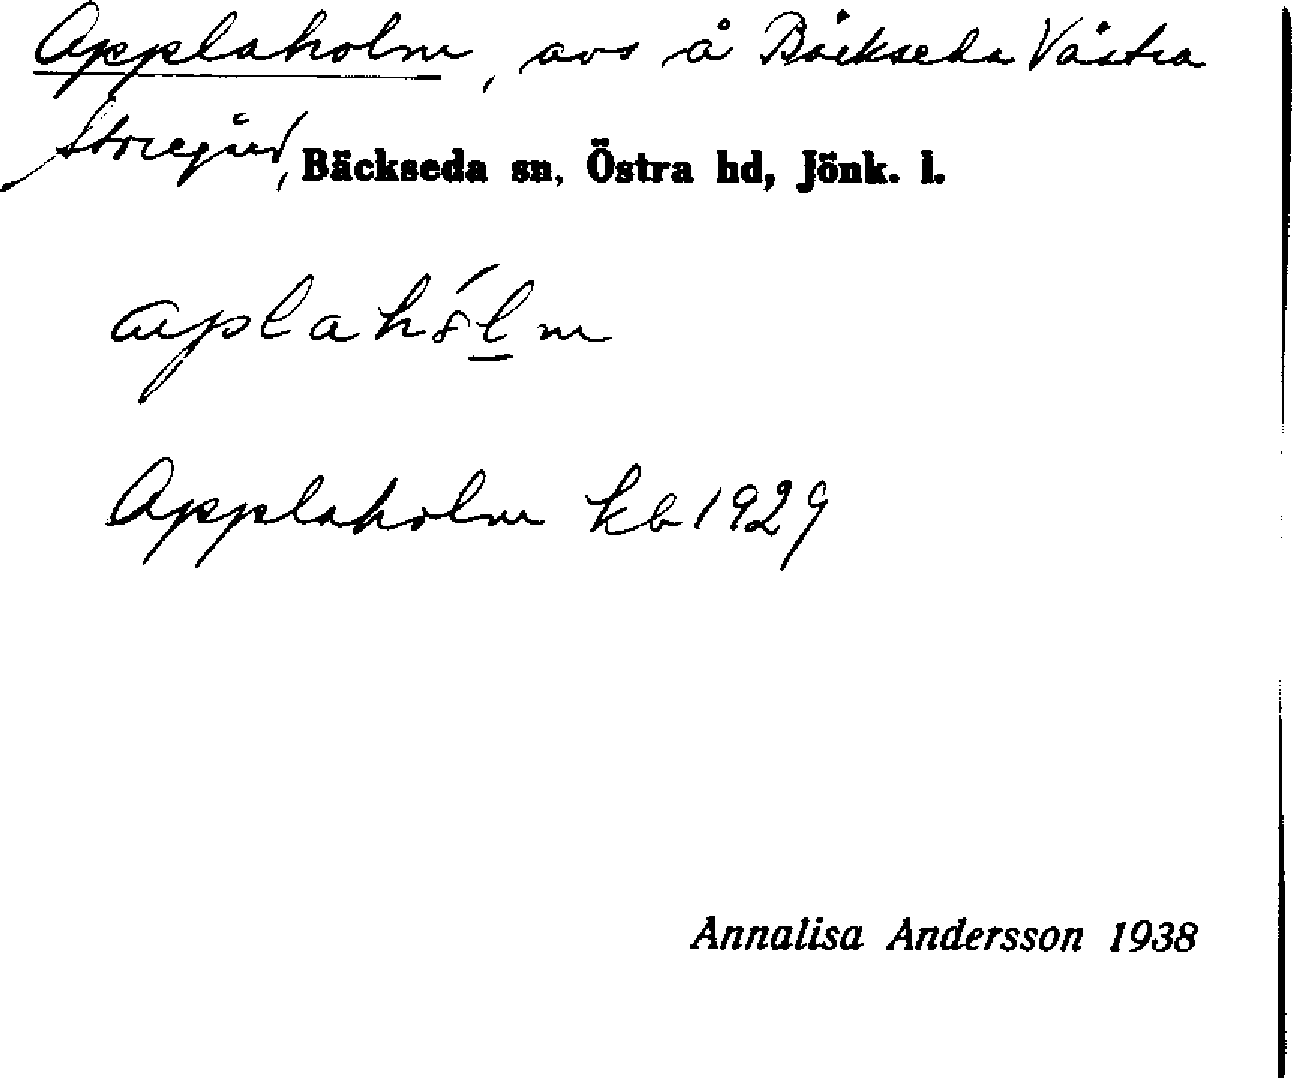 Applaholm, avs å Bäckseda Västra
Storegård, Bäckseda sn, Östra hd, Jönk. l.
aplahólm
Applaholm kb 1929
Annalisa Andersson 1938